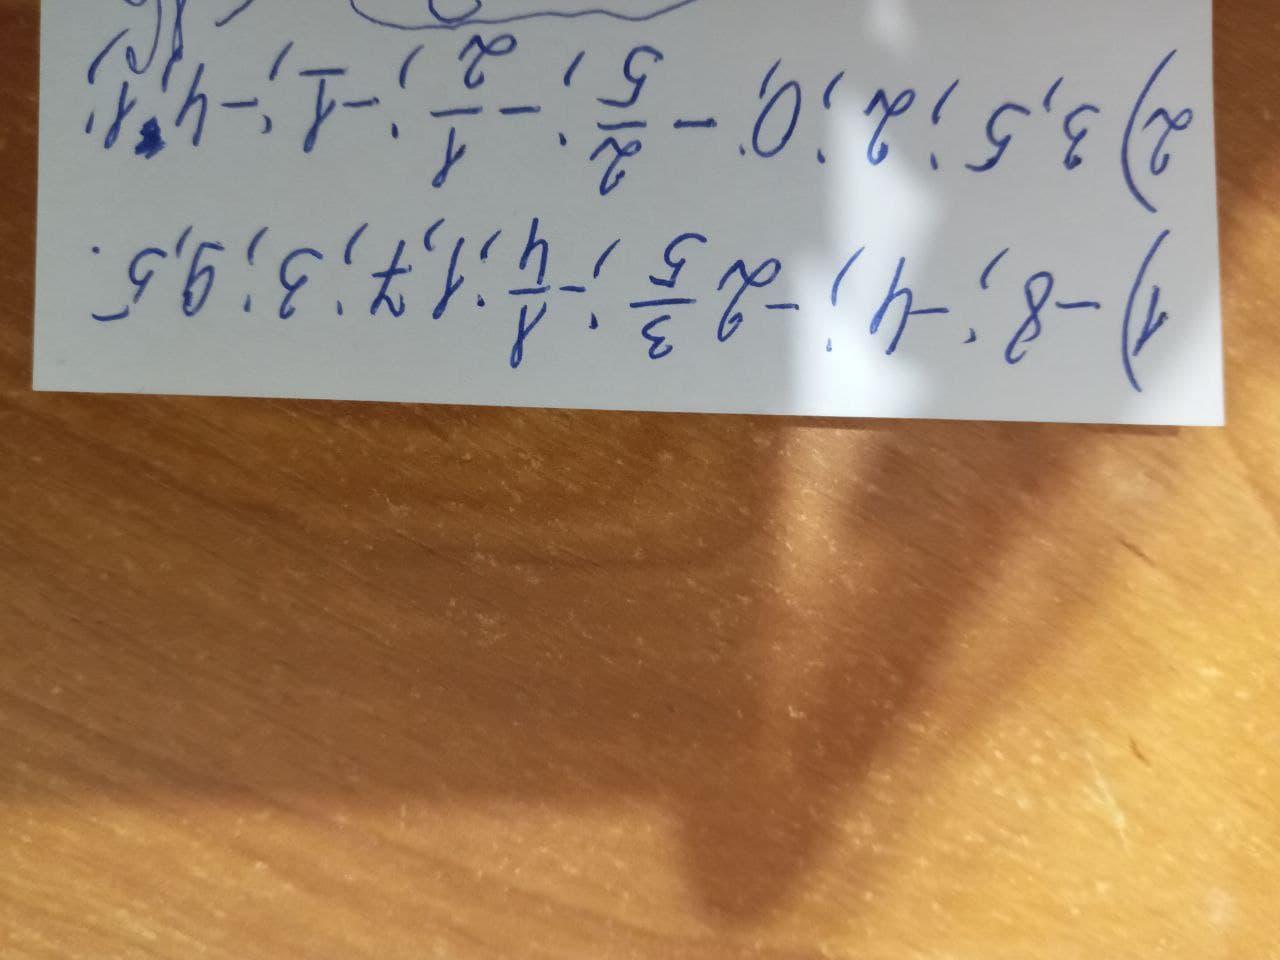 1) -8; -4; -2 3/5; -1/4; 1,7; 3; 9,5.
2) 3,5; 2; 0; -2/5; -1/2; -1; -4,1;